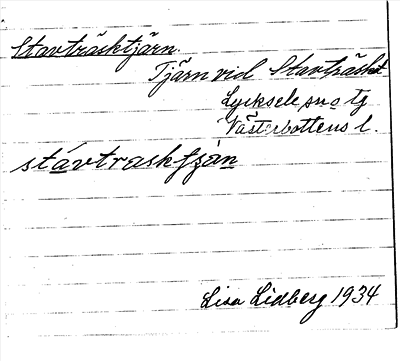 Stavträsktjärn.
Tjärn vid Stavträsket
Lycksele sno tg
Västerbottens l.
stávtrasktjän
Lisa Lidberg 1934